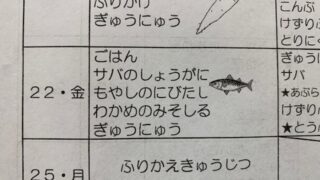 ふりかけ
ぎゅうにゅう
こんぶ
けずりぶ
とりにく
22・金
ごはん
サバのしょうがに
もやしのにびたし
わかめのみそしる
ぎゅうにゅう
ぎゅうに
サバ
★あぶら
けずりぶ
★とうふ
25・月
ふりかえきゅうじつ